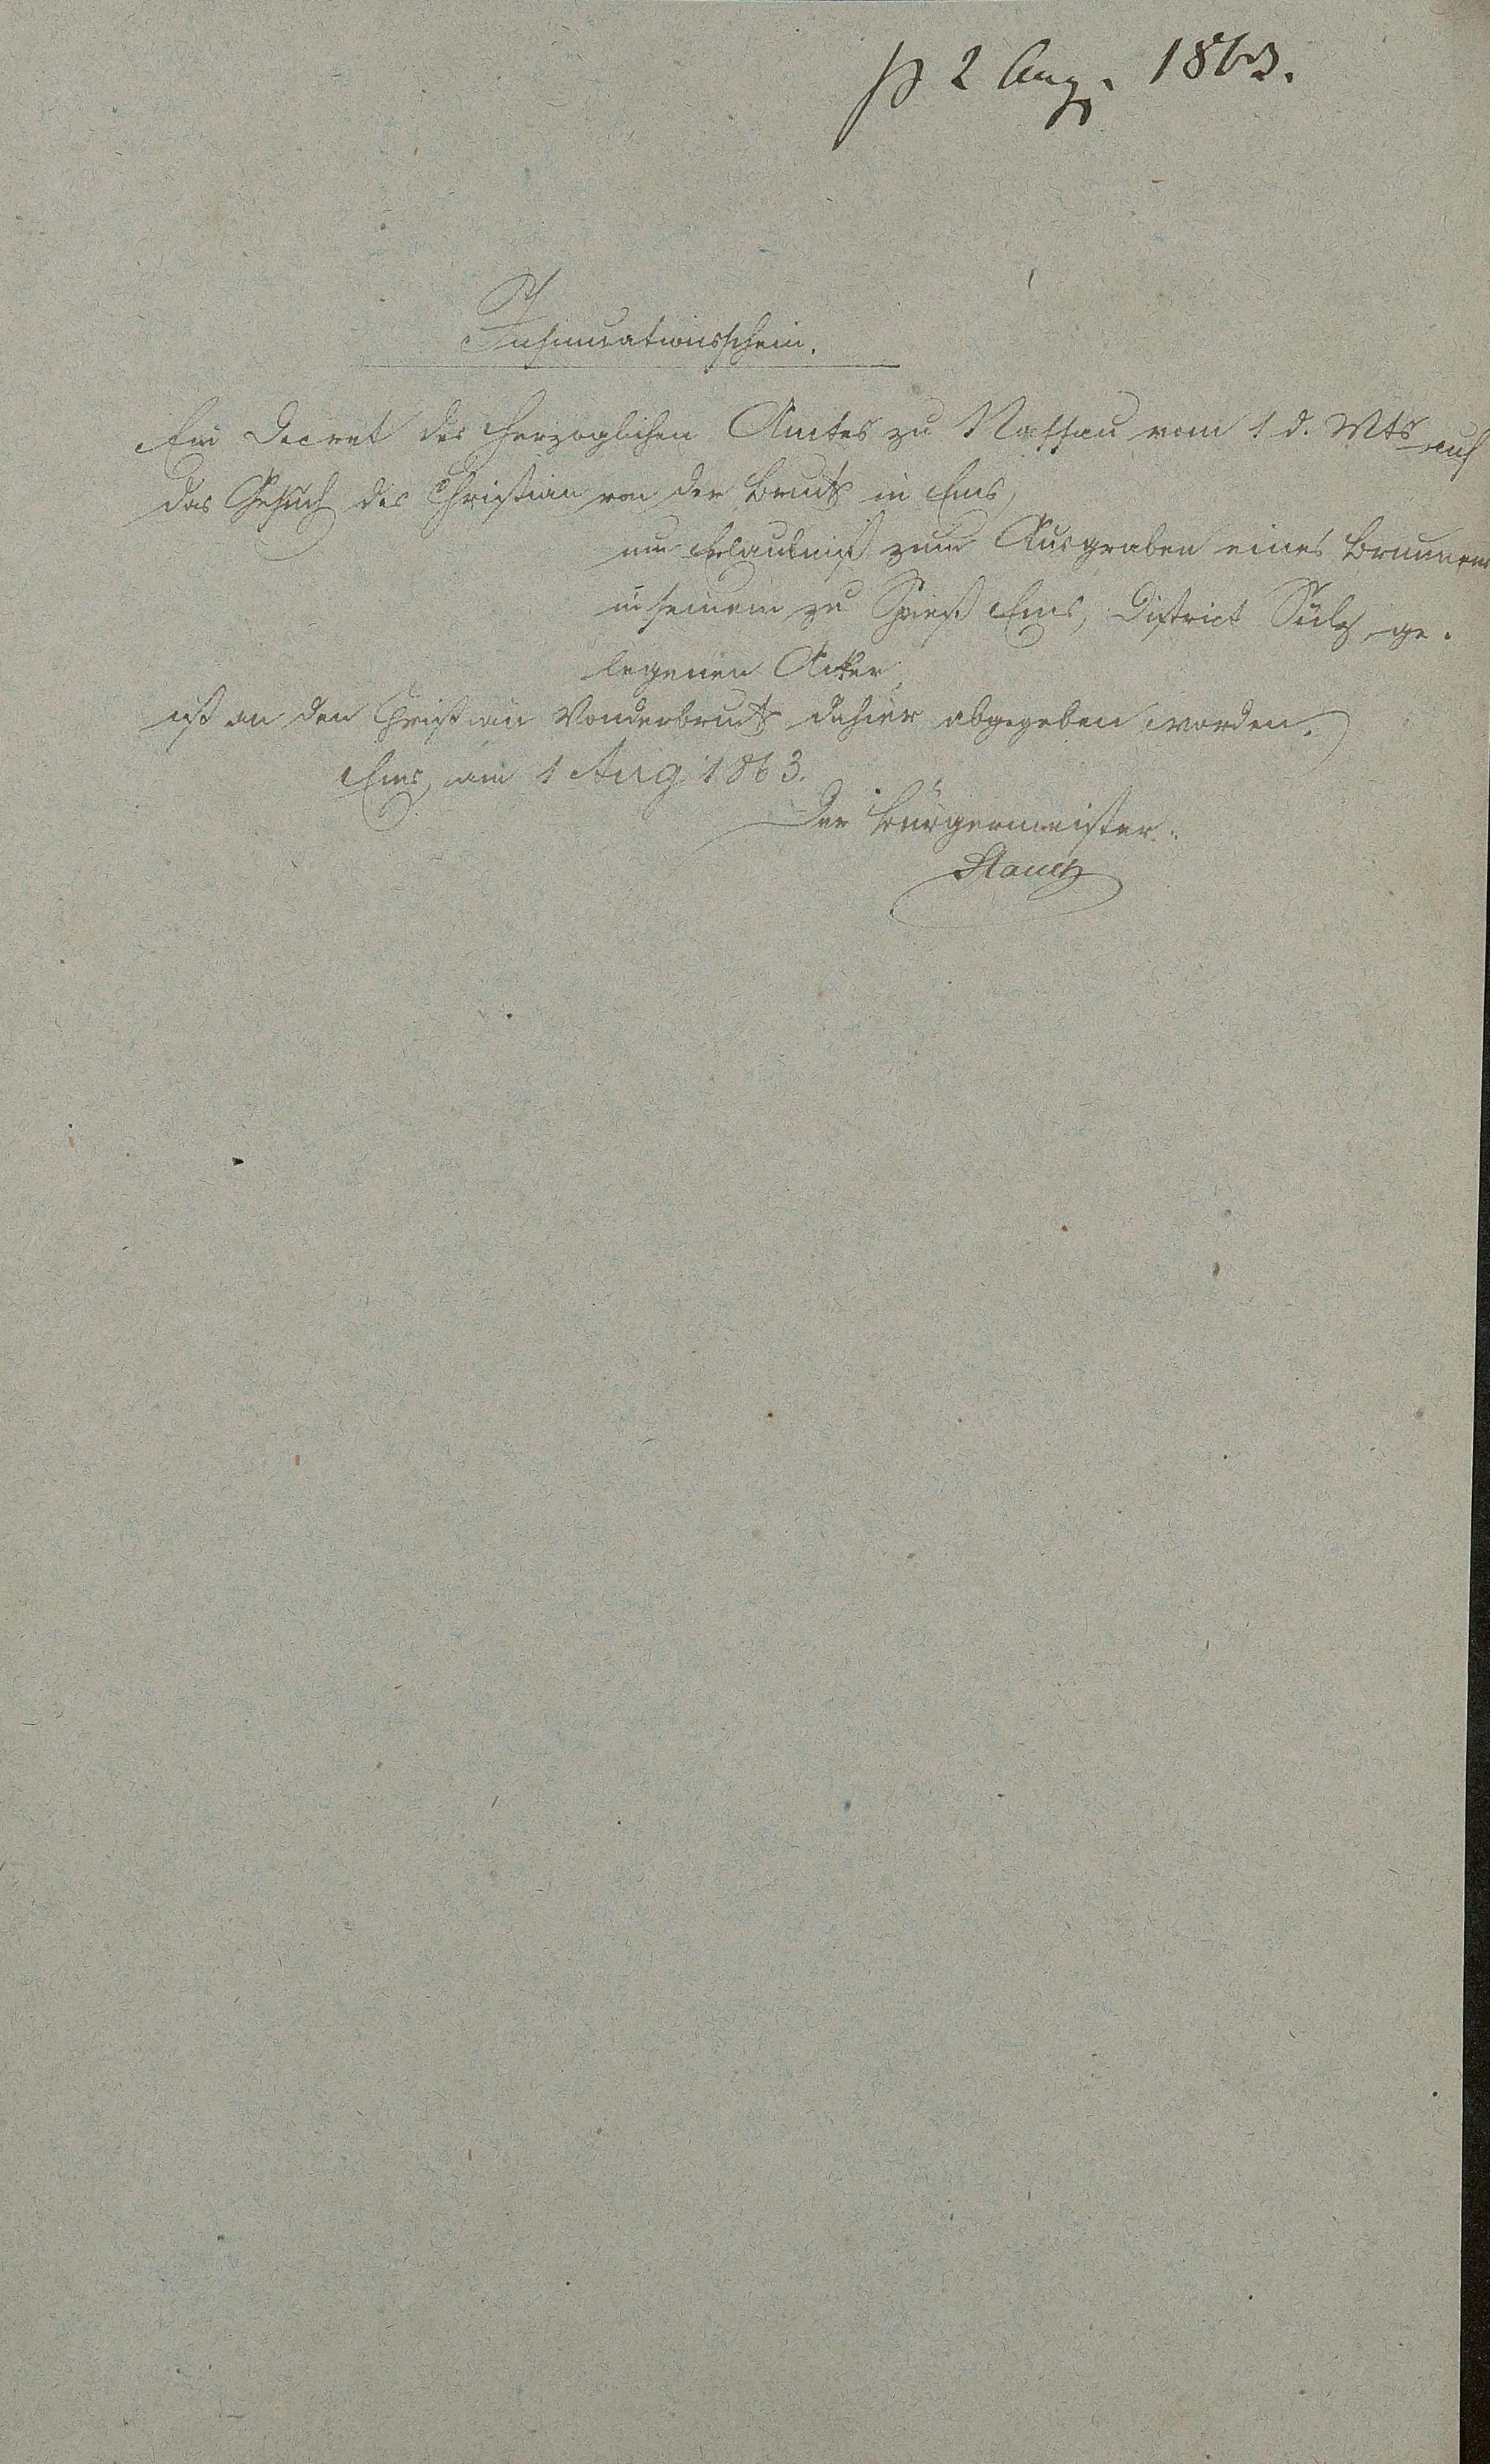 p 2 Aug. 1863.
Insinuationsschein.
Ein Decret des Herzoglichen Amtes zu Nassau vom 1 d. Mts auf
das Gesuch des Christian von der Bruck in Ems,
um Erlaubniß zum Ausgraben eines Brunnens
in seinem zu Ems, District Sulz ge-
legenen Acker,
ist an den Christian Vonderbruck dahier abgegeben worden.
Ems, am 1 Aug 1863.
Der Bürgermeister.